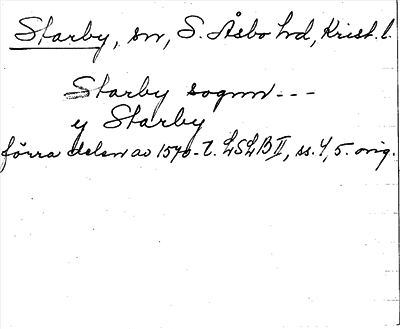 Starby, sn, S. Åsbo hd, Krist. l.
Starby sognn---
y Starby
förra delen av 1570-t. LSLB II, ss. 4, 5. orig.